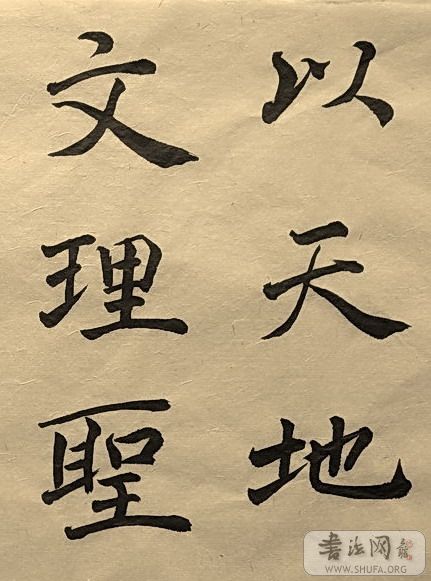 以天地
文理聖
書法网
WWW.SHUFA.ORG